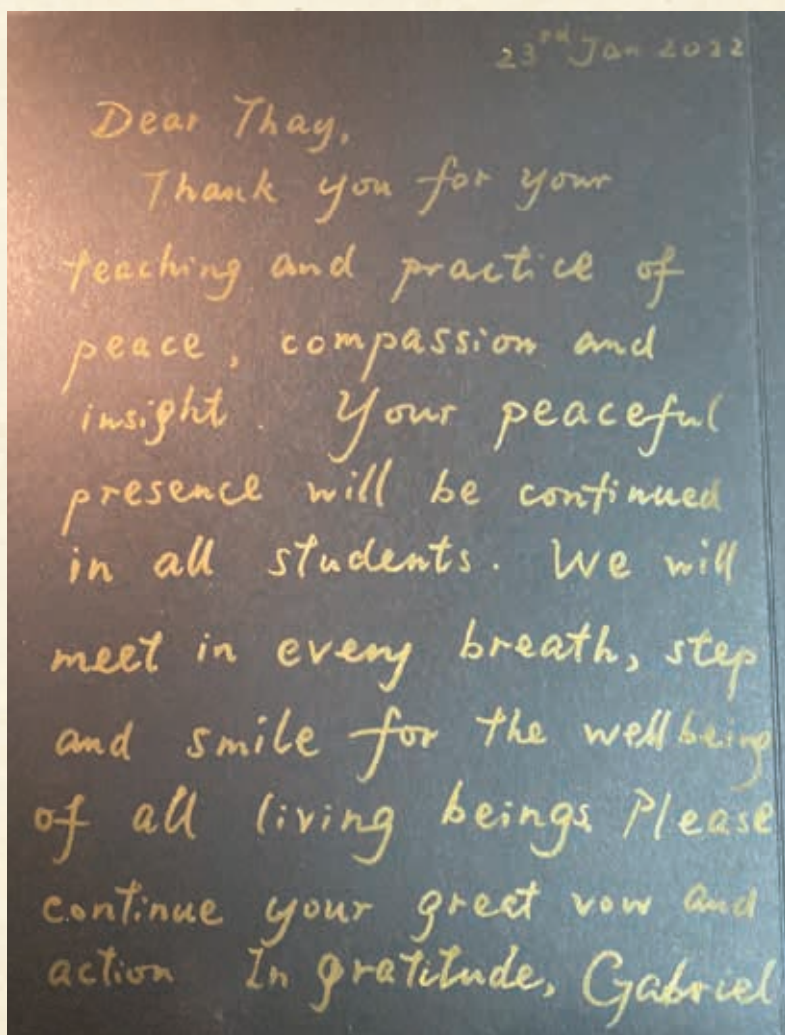 23rd Jan 2022
Dear Thay,
Thank you for your
teaching and practice of
peace, compassion and
insight. Your peaceful
presence will be continued
in all students. We will
meet in every breath, step
and smile for the wellbeing
of all living beings. Please
continue your great vow and
action In gratitude, Gabriel